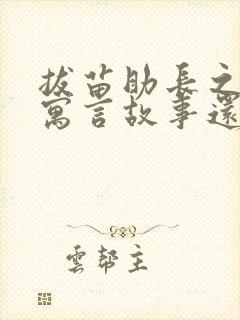 拔苗助長之
寓言故事還
雲幇主